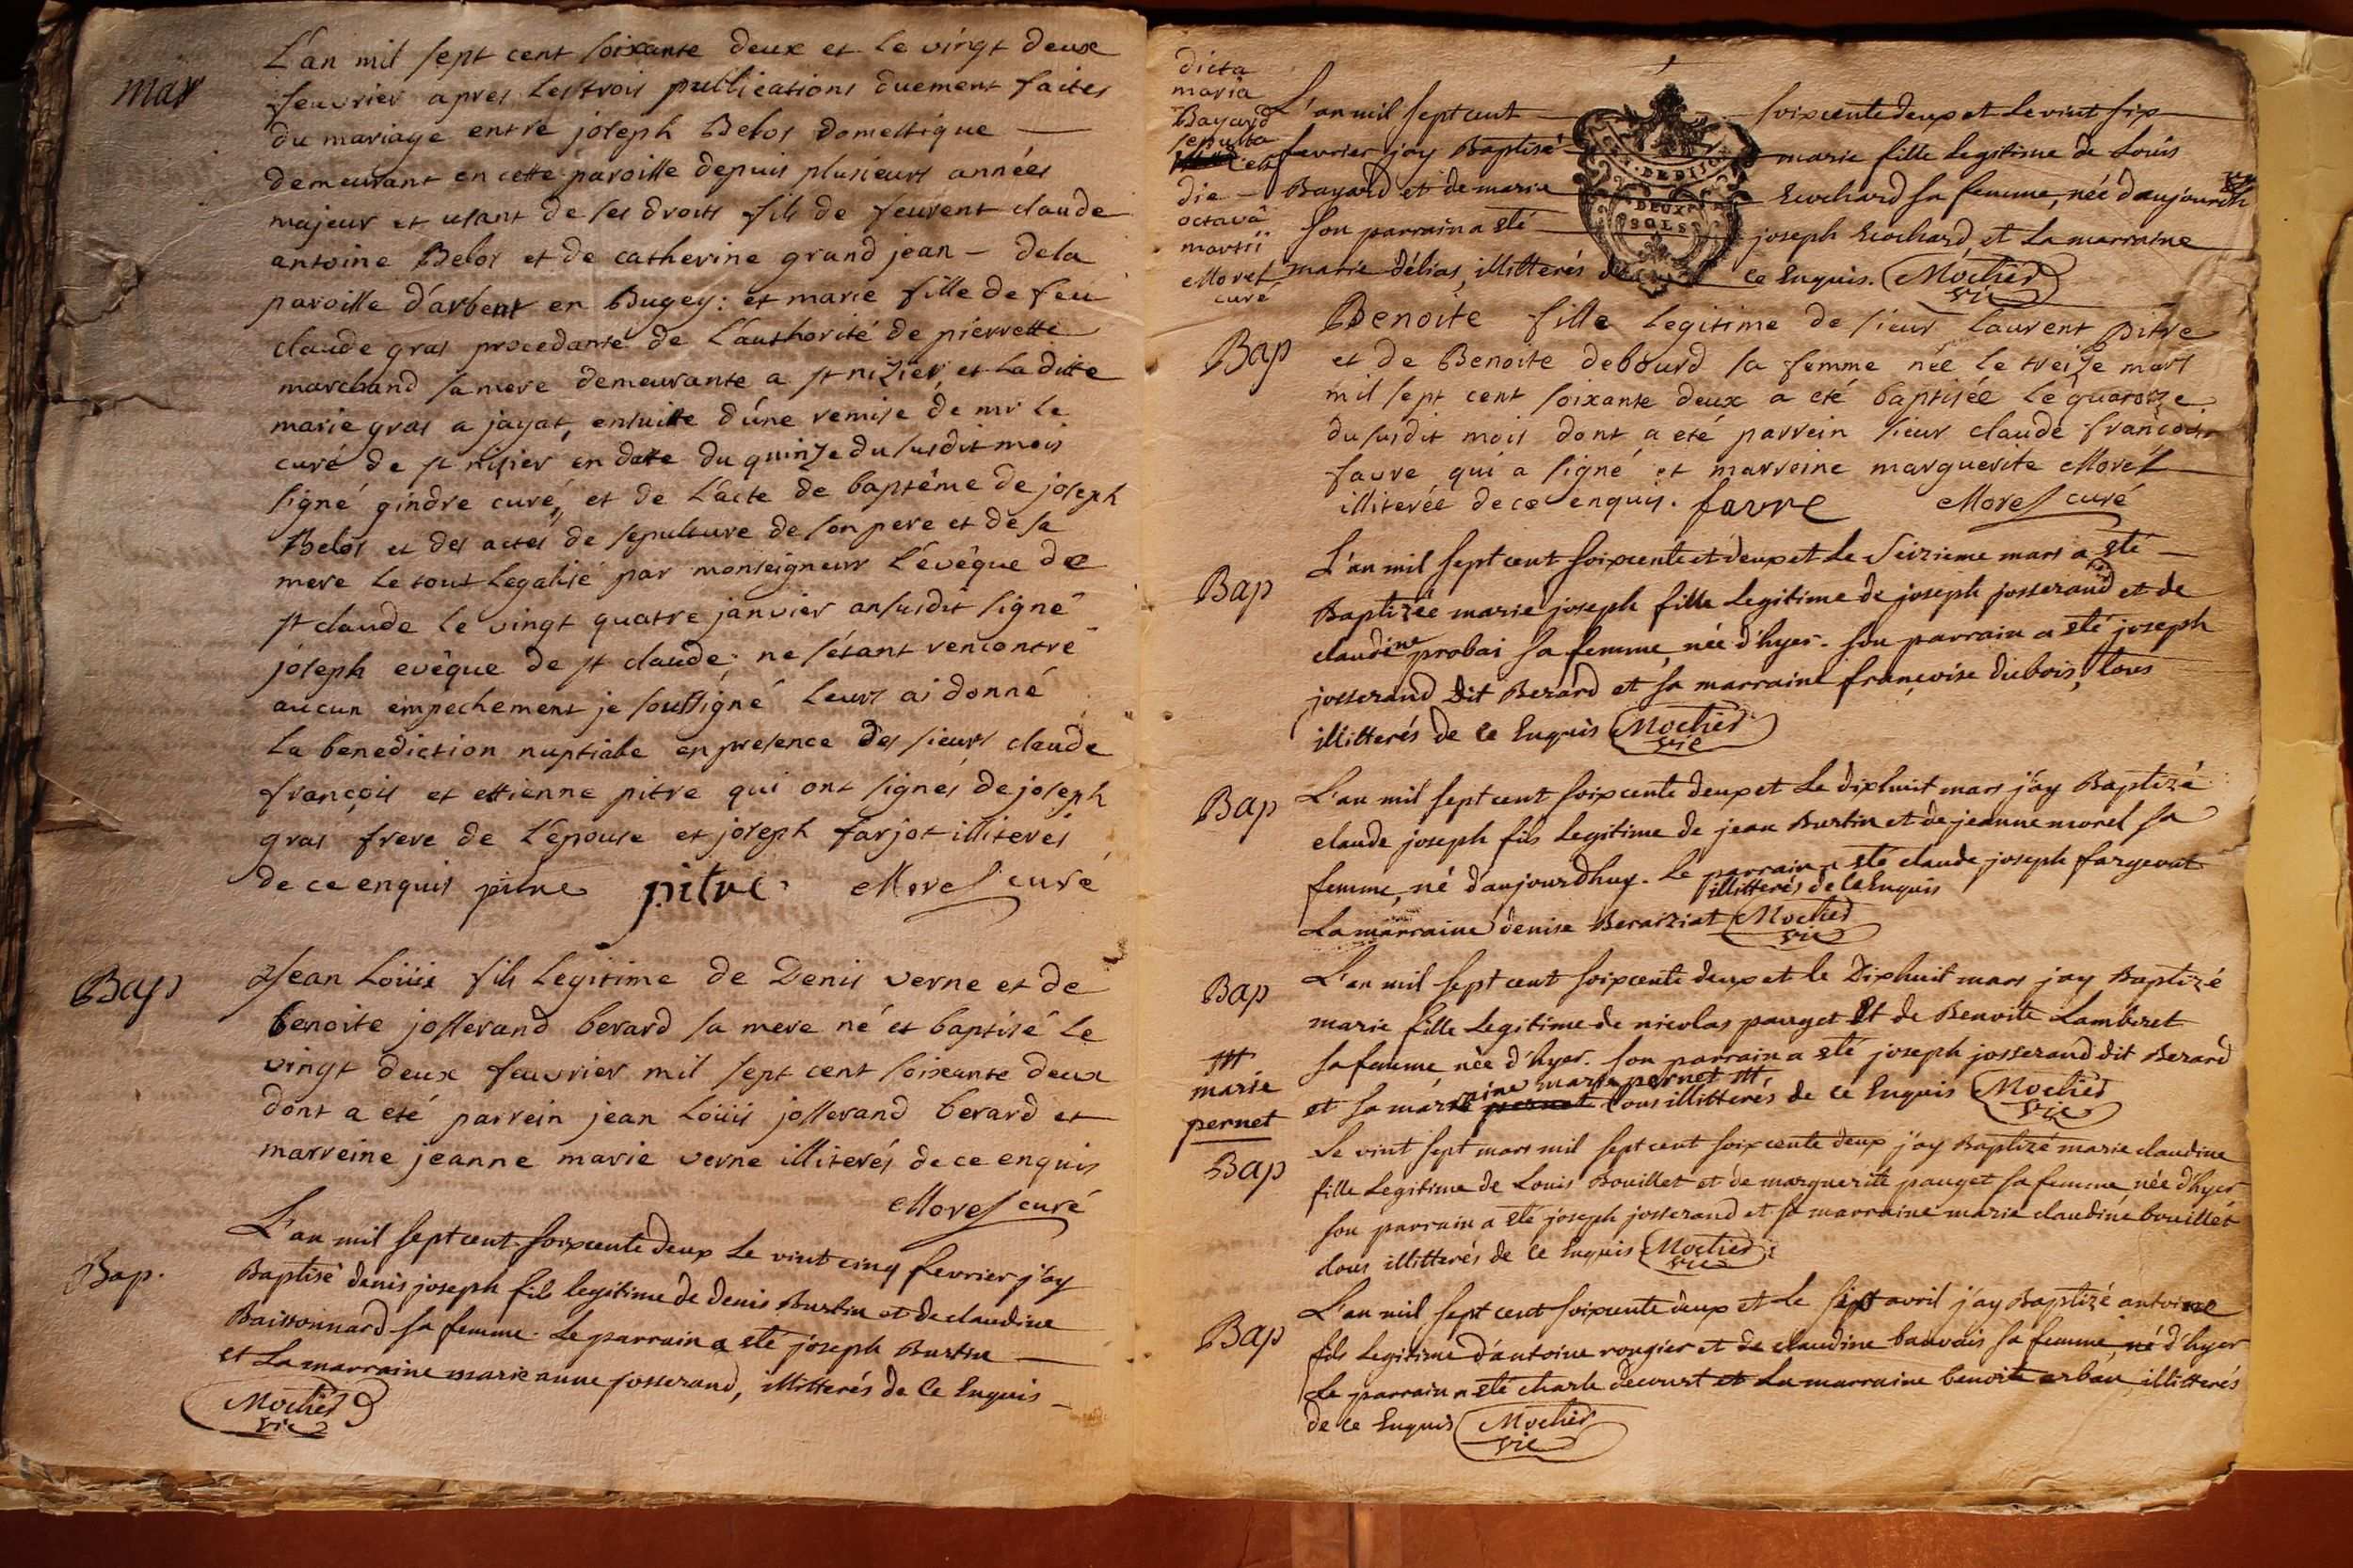 mar
L'an mil sept cent soixante deux et le vingt deux
feuvrier apres les trois publications duement faites
du mariage entre joseph Belos domestique
demeurant en cette paroisse depuis plusieurs années
majeur et usant de ses droits fils de feurent claude
antoine Belos et de catherine grand jean - dela
paroisse d'arbent en Bugey: et marie fille de feu
claude gras procedante de L'authorité de pierrette
marchand sa mere demeurante a st nizier, et La ditte
marie gras a jayat, ensuitte d'une remise de mr le
curé de st nisier en datte du quinze du susdit mois
signé gindre curé, et de L'acte de baptême de joseph
Belos et des actes de sepulture de son pere et de sa
mere Le tout Legalisé par monseigneur L'évêque de
st claude le vingt quatre janvier an susdit signé
joseph evêque de st claude; ne s'étant rencontré
aucun empechement je soussigné Leurs ai donné
La benediction nuptiale en presence des sieurs claude
françois et ettienne pitre qui ont signés de joseph
gras frere de L'epouse et joseph farjot illiterés
de ce enquis pitre pitre Morel curé
Bap
Jean Loüis fils Legitime de Denis verne et de
benoite josserand berard sa mere né et baptisé le
vingt deux feuvrier mil sept cent soixante deux
dont a eté parrein jean Loüis josserand berard et
marreine jeanne marie verne illiterés de ce enquis
Morel curé
Bap.
L'an mil sept cent soixcente deux Le vint cinq fevrier j'ay
Baptisé denis joseph fils legitime de denis Burtin et de claudine
Baissonnard sa femme. Le parrain a eté joseph Burtin
et La marraine marie anne josserand, illitterés de ce Enquis
Mochet
vic
dicta
maria
Bayard
sepulta
est
die
octavâ
martii
Morel
curé
L'an mil sept cent soixcente deux et Le vint six
fevrier j'ay Baptisé marie fille Legitime de Louis
Bayard et de marie Ecochard sa femme, née d'aujourdh
son parrain a eté joseph Ecochard et La marraine
marie délias, illitterés de ce Enquis. Mochet
vic
DEUX
SOLS
Bap
Benoite fille Legitime de sieur Laurent Pitre
et de Benoite debourd sa femme née le treize mars
mil sept cent soixante deux a eté baptisée Le quatorze
du susdit mois dont a eté parrein sieur claude françois
favre qui a signé et marreine marguerite Morel
illiterée de ce enquis. favre Morel curé
Bap
L'an mil sept cent soixcente et deux et Le Seizieme mars a eté
Baptizée marie joseph fille Legitime de joseph josserand et de
claudine probai sa femme, née d'hyer. son parrain a eté joseph
josserand dit Berard et sa marraine françoise dubois, tous
illitterés de ce Enquis Mochet
vic
Bap
L'an mil sept cent soixcente deux et Le dixhuit mars j'ay Baptizé
claude joseph fils Legitime de jean Burtin et de jeanne morel sa
femme, né d'aujourdhuy. Le parrain a eté claude joseph fargevat
illitterés de ce Enquis
La marraine denise Beraiziat Mochet
vic
Bap
L'an mil sept cent soixcente deux et le Dixhuit mars j'ay Baptizé
marie fille Legitime de nicolas pauget Et de Benoite Lamberet
sa femme née d'hyer. son parrain a eté joseph josserand dit Berard
raine marie pernet
et sa mar pernet tous illitterés de ce Enquis Mochet
vic
marie
pernet
Bap
Le vint sept mars mil sept cent soixcente deux j'ay Baptizé marie claudine
fille Legitime de Louis Bouillet et de marguerite pauget sa femme, née d'hyer
son parrain a eté joseph josserand et sa marraine marie claudine bouillet
tous illitterés de ce Enquis Mochet
vic
Bap
L'an mil sept cent soixcente deux et Le sept avril j'ay Baptizé antoine
fils Legitime d'antoine rougier et de claudine bauvais sa femme, né d'hyer
Le parrain a eté charle decourt et La marraine benoite arban, illitterés
de ce Enquis Mochet
vic